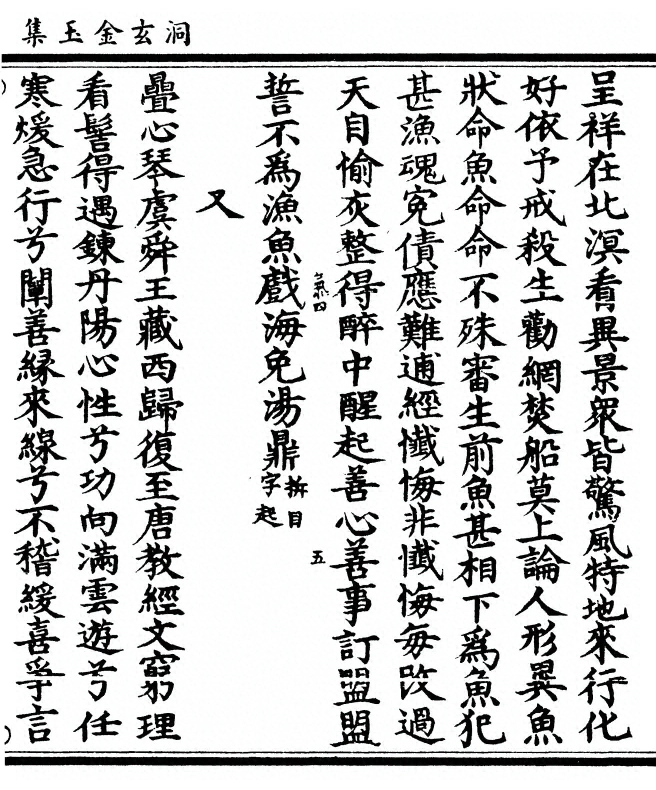 洞玄金玉集
呈祥在北溟看異景衆皆驚風特地來行化
好依予戒殺生勸網焚船莫上論人形異魚
狀命魚命命不殊審生前魚甚相下爲魚犯
甚漁魂寃債應難逋經懺悔非懺悔每改過
天自愉灾整得醉中醒起善心善事訂盟盟
氣四
五
誓不爲漁魚戲海免湯鼎拆目字起
又
疊心琴虞舜王藏西歸復至唐教經文窮理
看髻得遇鍊丹陽心性兮功向滿雲遊兮任
寒煖急行兮闡善緣來線兮不稽緩喜爭言